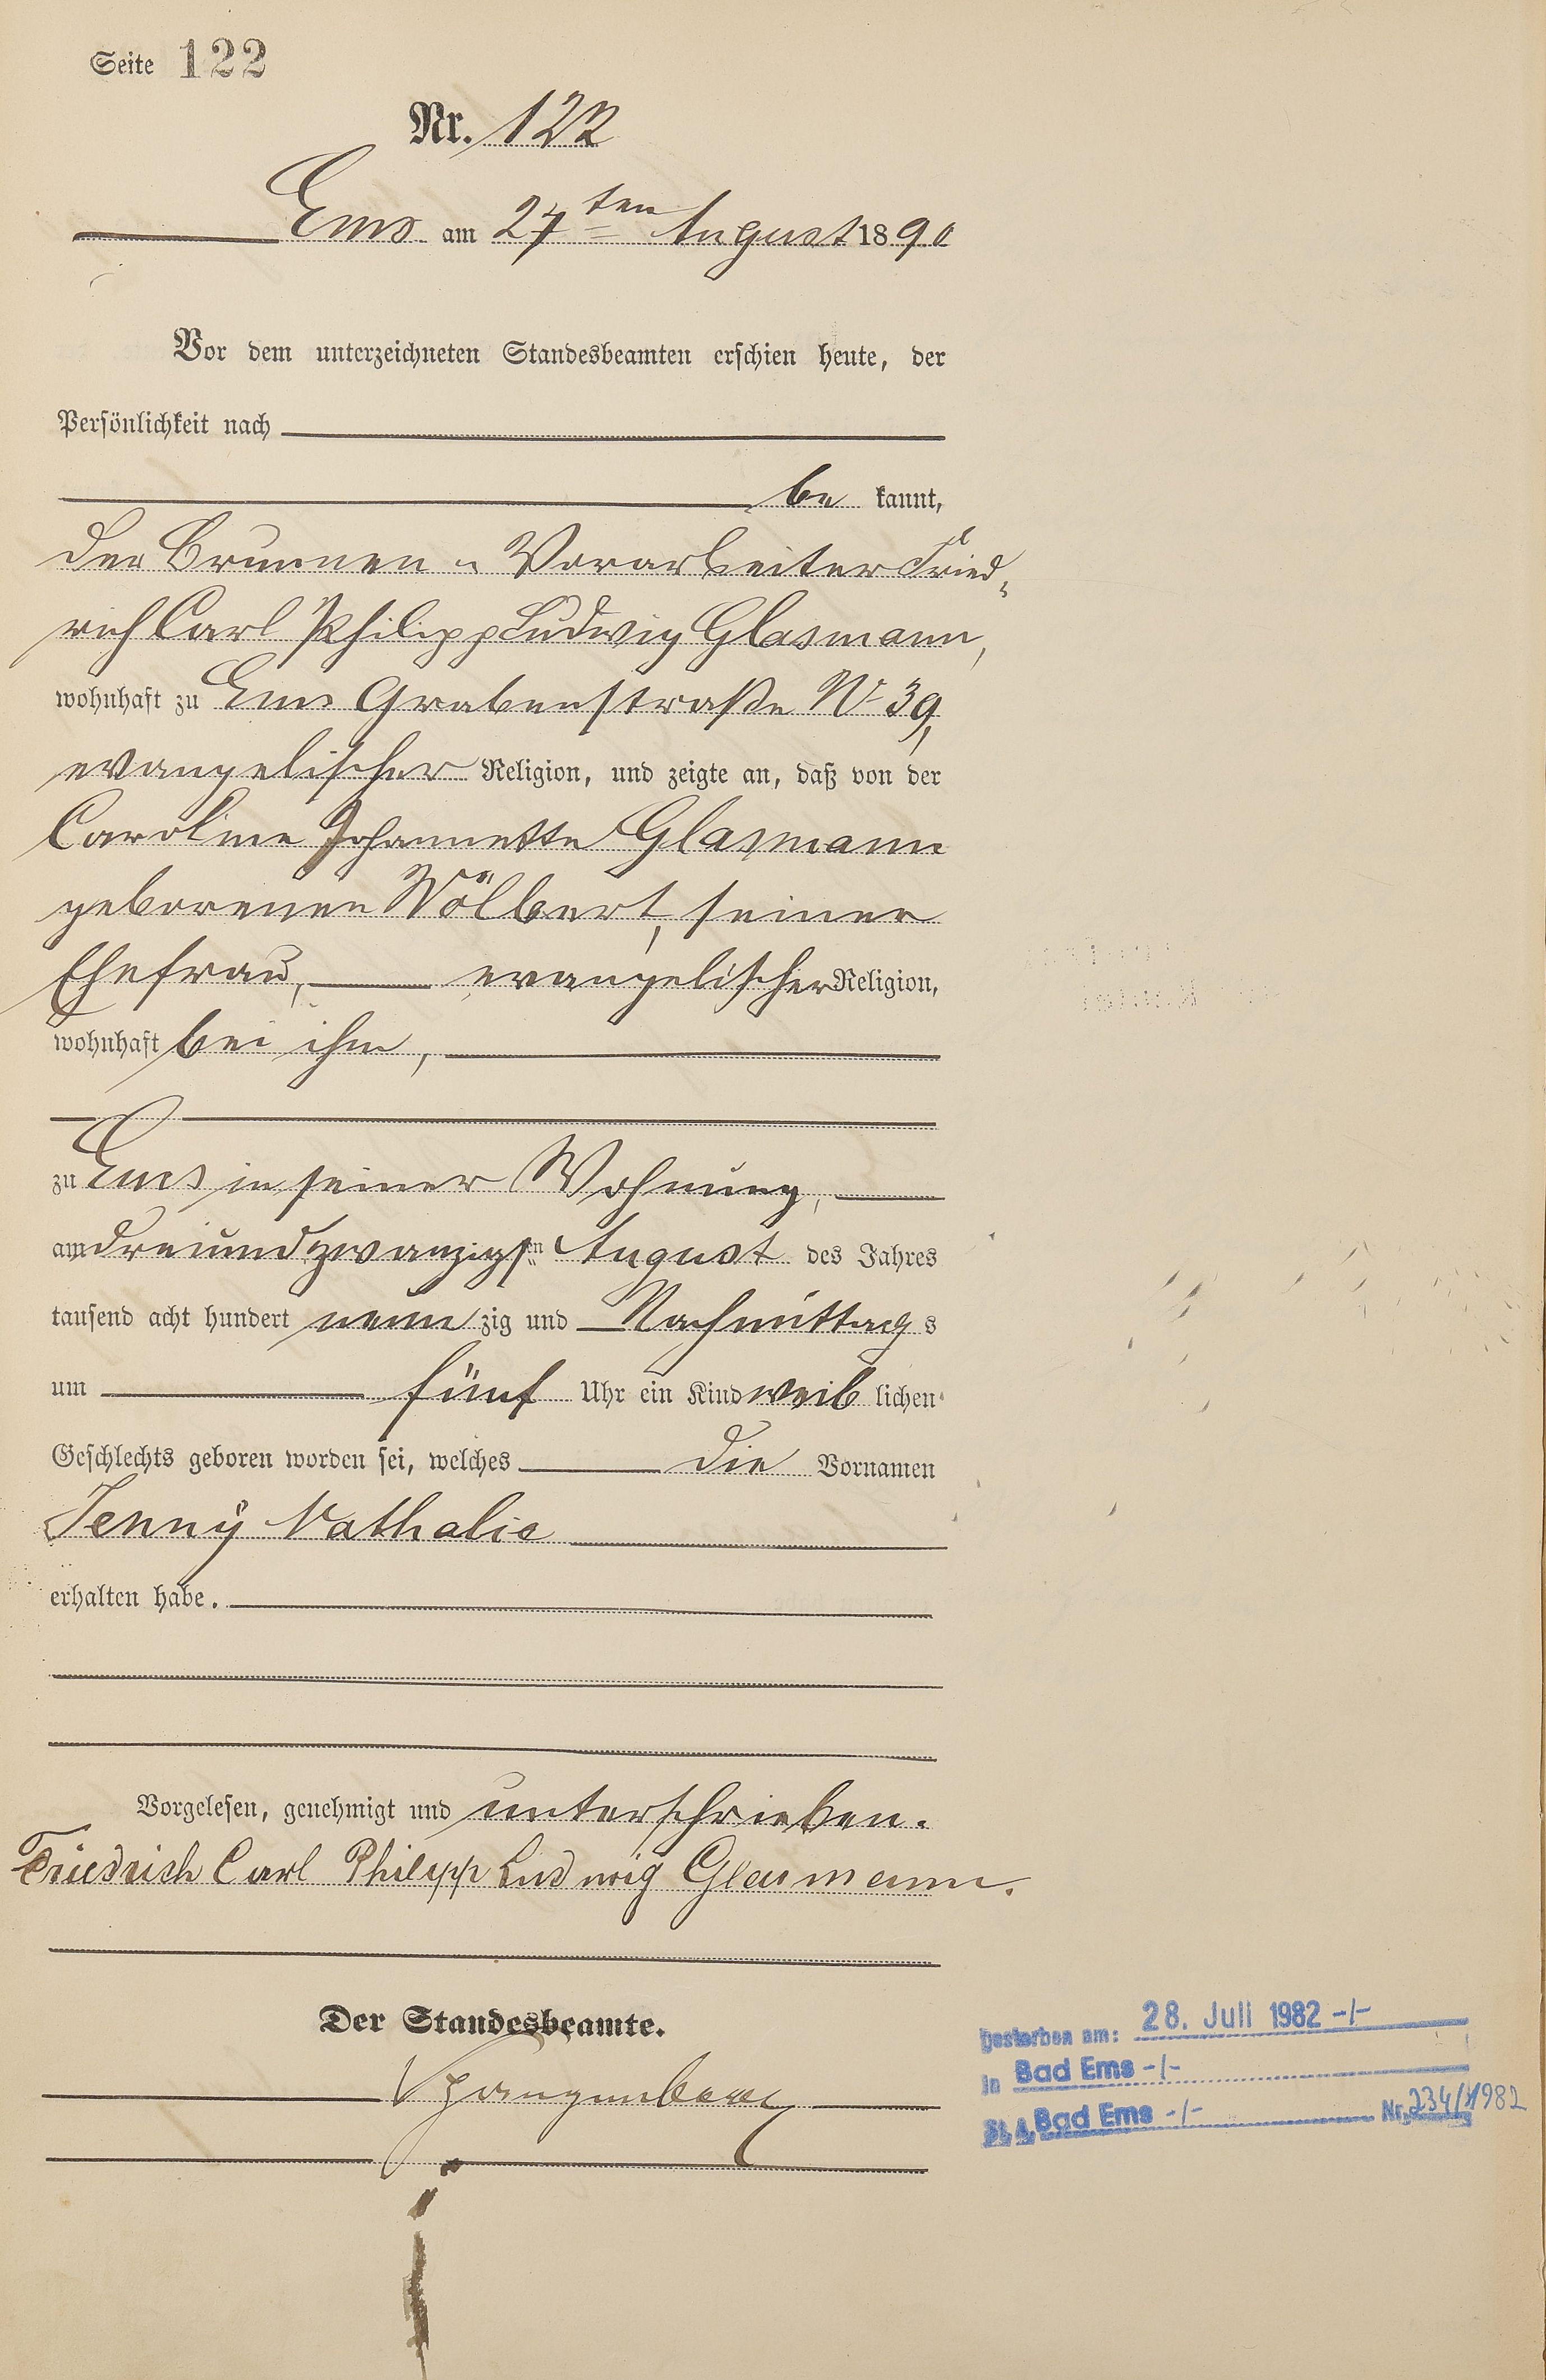 Seite 122
Nr. 122
Ems am 27ten August 1890
Vor dem unterzeichneten Standesbeamten erschien heute, der
Persönlichkeit nach
be kannt,
der Brunnen - Vorarbeiter Fried-
rich Carl Philipp Ludwig Glasmann,
wohnhaft zu Ems Grabenstraße No 39,
evangelischer Religion, und zeigte an, daß von der
Caroline Johannette Glasmann
geborenen Wölbert, seiner
Ehefrau, evangelischer Religion,
wohnhaft bei ihm,
zu Ems in seiner Wohnung,
am dreiundzwanzigsten August des Jahres
tausend acht hundert neun zig und Nachmittag s
um fünf Uhr ein Kind weib lichen
Geschlechts geboren worden sei, welches die Vornamen
Jenny Nathalie
erhalten habe.
Vorgelesen, genehmigt und unterschrieben.
Friedrich Carl Philipp Ludwig Glasmann.
Der Standesbeamte.
Spangenberg
Gestorben am: 28. Juli 1982 -/-
in Bad Ems -/-
St. A. Bad Ems -/- Nr. 234/1982